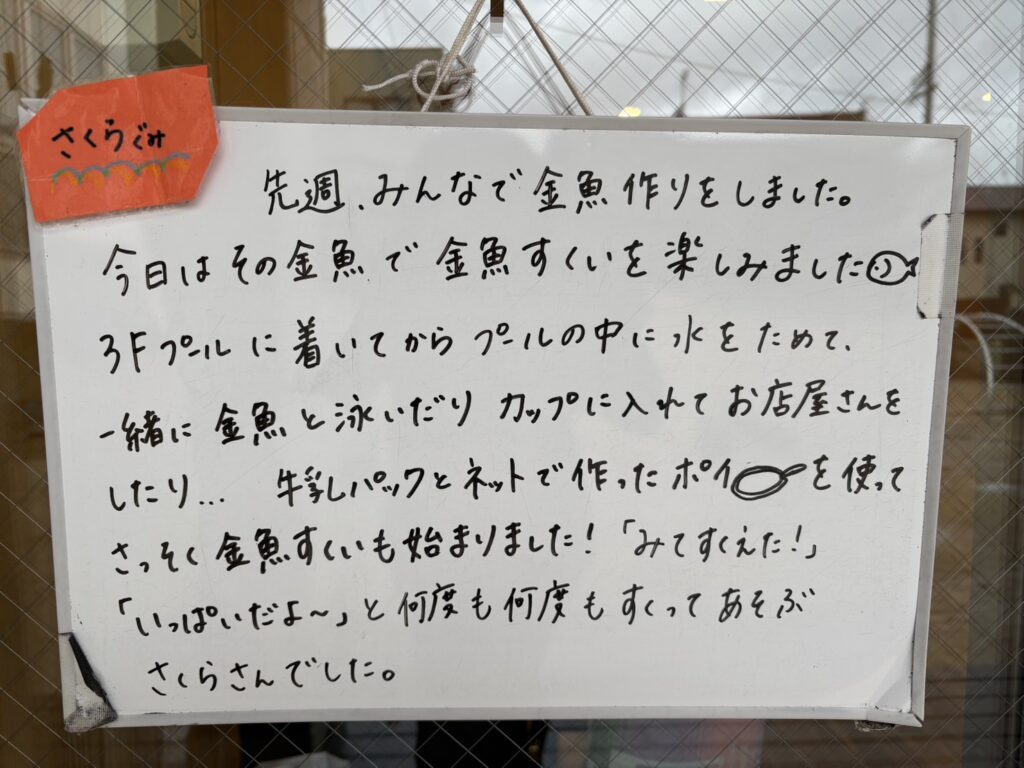 さくらぐみ
先週、みんなで金魚作りをしました。
今日はその金魚で金魚すくいを楽しみました
3Fプールに着いてからプールの中に水をためて、
一緒に金魚と泳いだりカップに入れてお店屋さんを
したり… 牛乳パックとネットで作ったポイを使って
さっそく金魚すくいも始まりました!「みてすくえた!」
「いっぱいだよ〜」と何度も何度もすくってあそぶ
さくらさんでした。